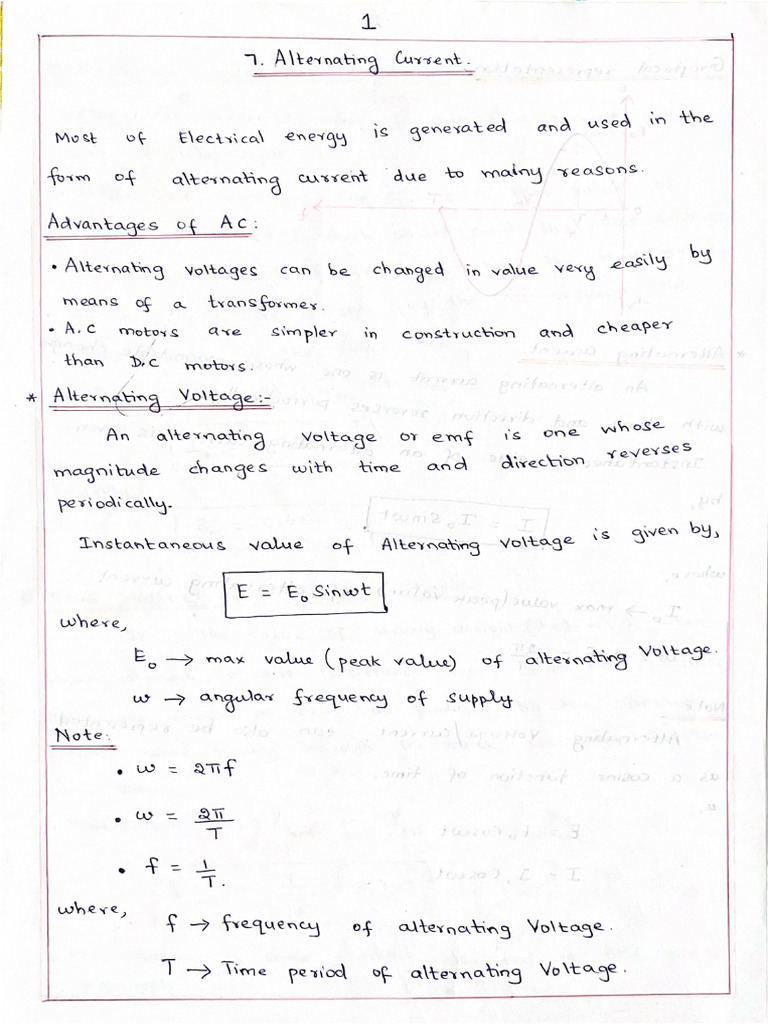 1
7. Alternating Current.
Most of Electrical energy is generated and used in the
form of alternating current due to mainy reasons.
Advantages of AC:
• Alternating voltages can be changed in value very easily by
means of a transformer.
• A.C motors are simpler in construction and cheaper
than D.C motors.
* Alternating Voltage:-
An alternating voltage or emf is one whose
magnitude changes with time and direction reverses
periodically.
Instantaneous value of Alternating voltage is given by,
E = E₀ Sinωt
where,
E₀ → max value (peak value) of alternating Voltage.
ω → angular frequency of supply
Note:
• ω = 2πf
• ω = 2π/T
• f = 1/T.
where,
f → frequency of alternating Voltage.
T → Time period of alternating Voltage.